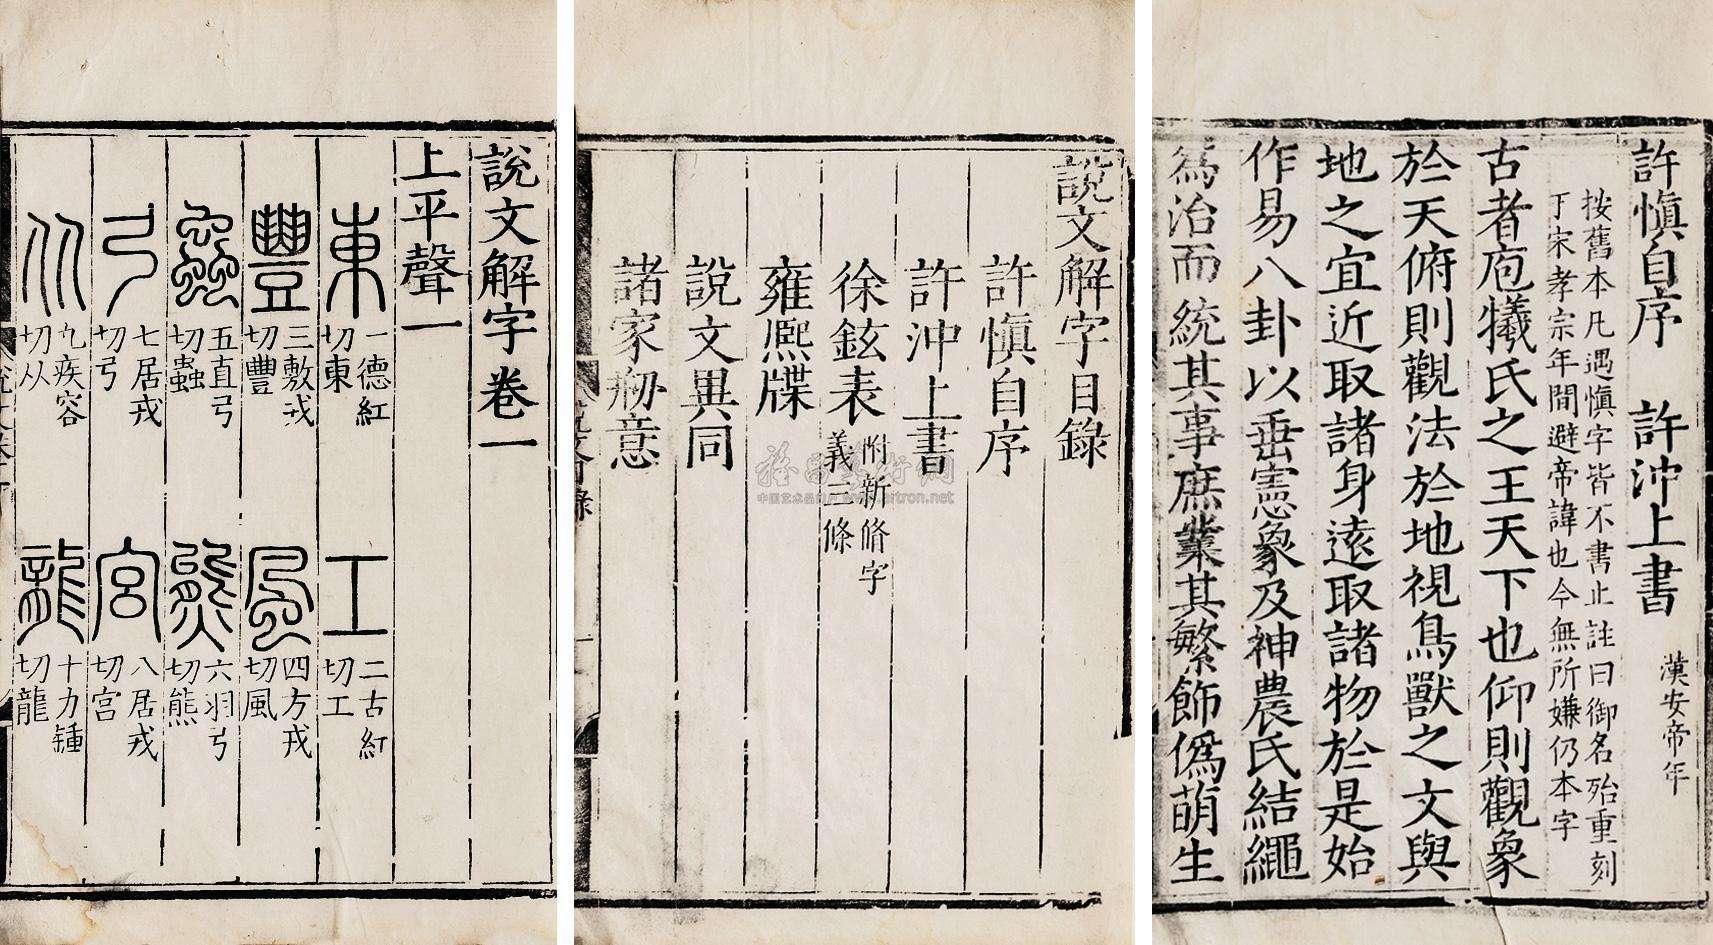 許慎自序 許沖上書 漢安帝年
按舊本凡遇慎字皆不書止註曰御名殆重刻
于宋孝宗年間避帝諱也今無所嫌仍本字
古者庖犧氏之王天下也仰則觀象
於天俯則觀法於地視鳥獸之文與
地之宜近取諸身遠取諸物於是始
作易八卦以垂憲象及神農氏結繩
爲治而統其事庶業其繁飾僞萌生
說文解字目錄
許慎自序
許沖上書
徐鉉表 附新脩字義三條
雍熙牒
說文異同
諸家刱意
說文解字卷一
上平聲一
東 一德紅切東 工 二古紅切工
豐 三敷戎切豐 風 四方戎切風
蟲 五直弓切蟲 熊 六羽弓切熊
弓 七居戎切弓 宮 八居戎切宮
从 九疾容切从 龍 十力鍾切龍
www.artron.net